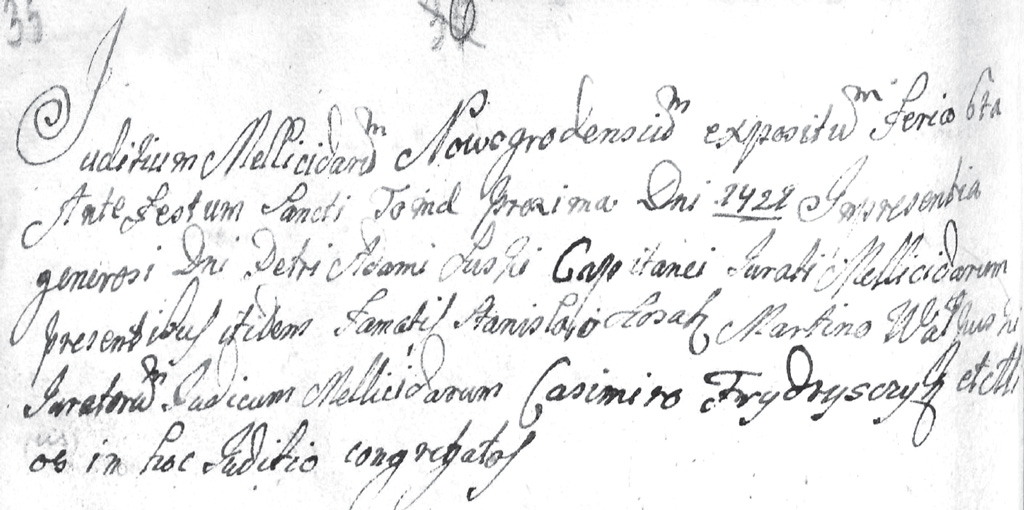 35
36
Juditium Mellicidarum Nowogrodensium expositum Feria 6ta
Ante Festum Sancti Tomd Proxima Dni 1721 Inpresentia
generosi Dni Petri Adami Luski Capitanei Jurati Mellicidarum
presentibus itidem Famatis Stanislaio Kosak Martino Walkuski
Juratorum Judicum Mellicidarum Casimiro Frydrysczyk et alli
os in hoc Juditio congregatos